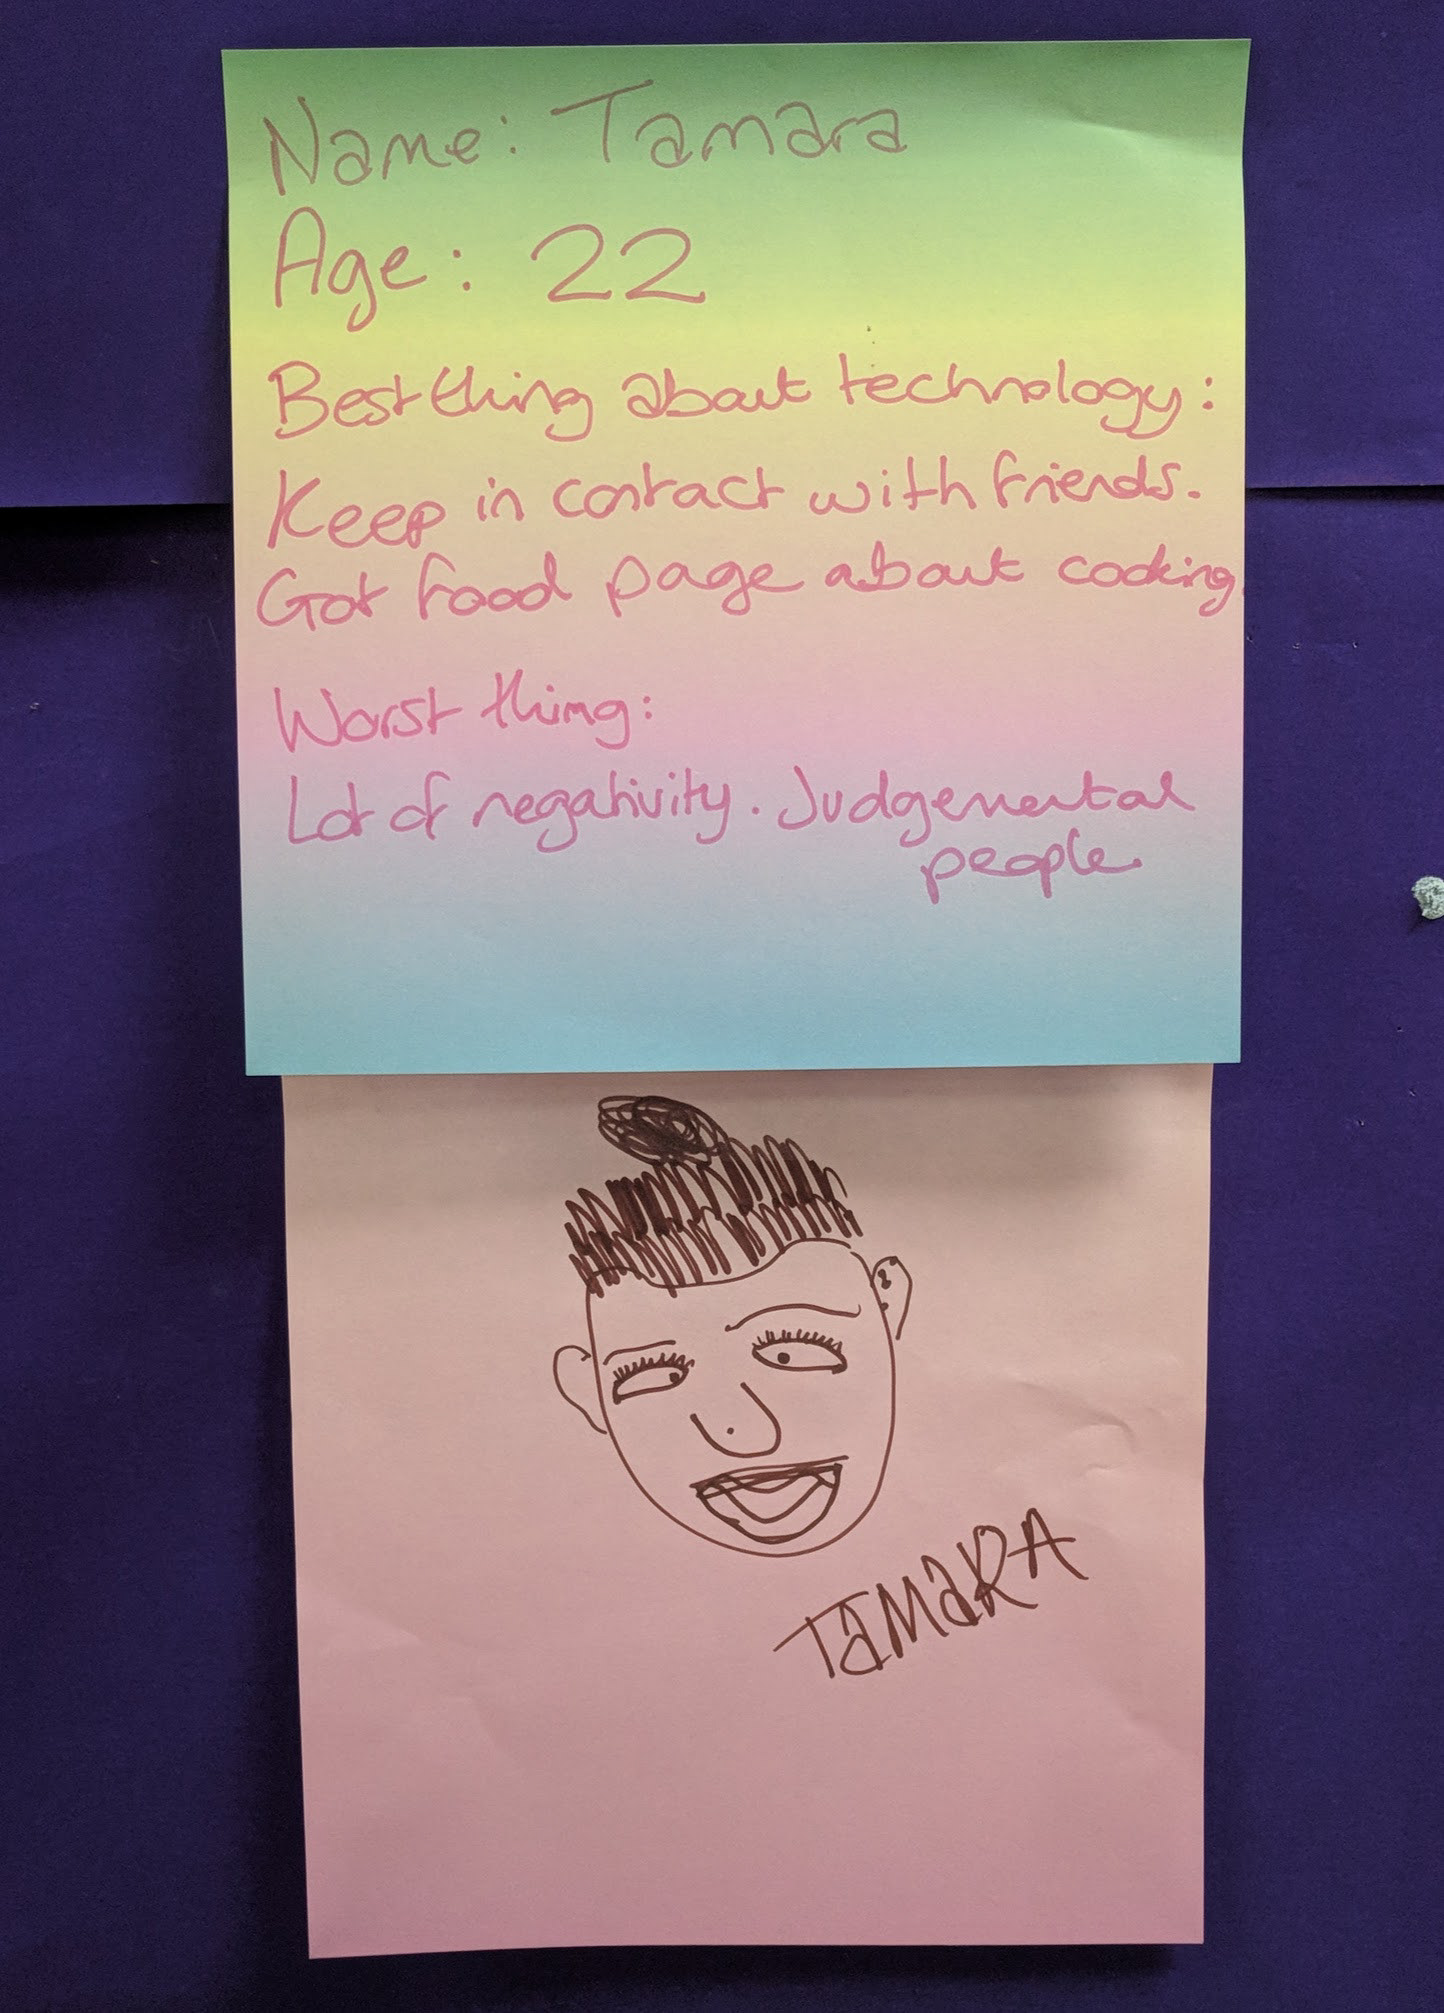 Name: Tamara
Age: 22
Best thing about technology:
Keep in contact with friends.
Got food page about cooking.
Worst thing:
Lot of negativity. Judgemental
people.
TAMARA